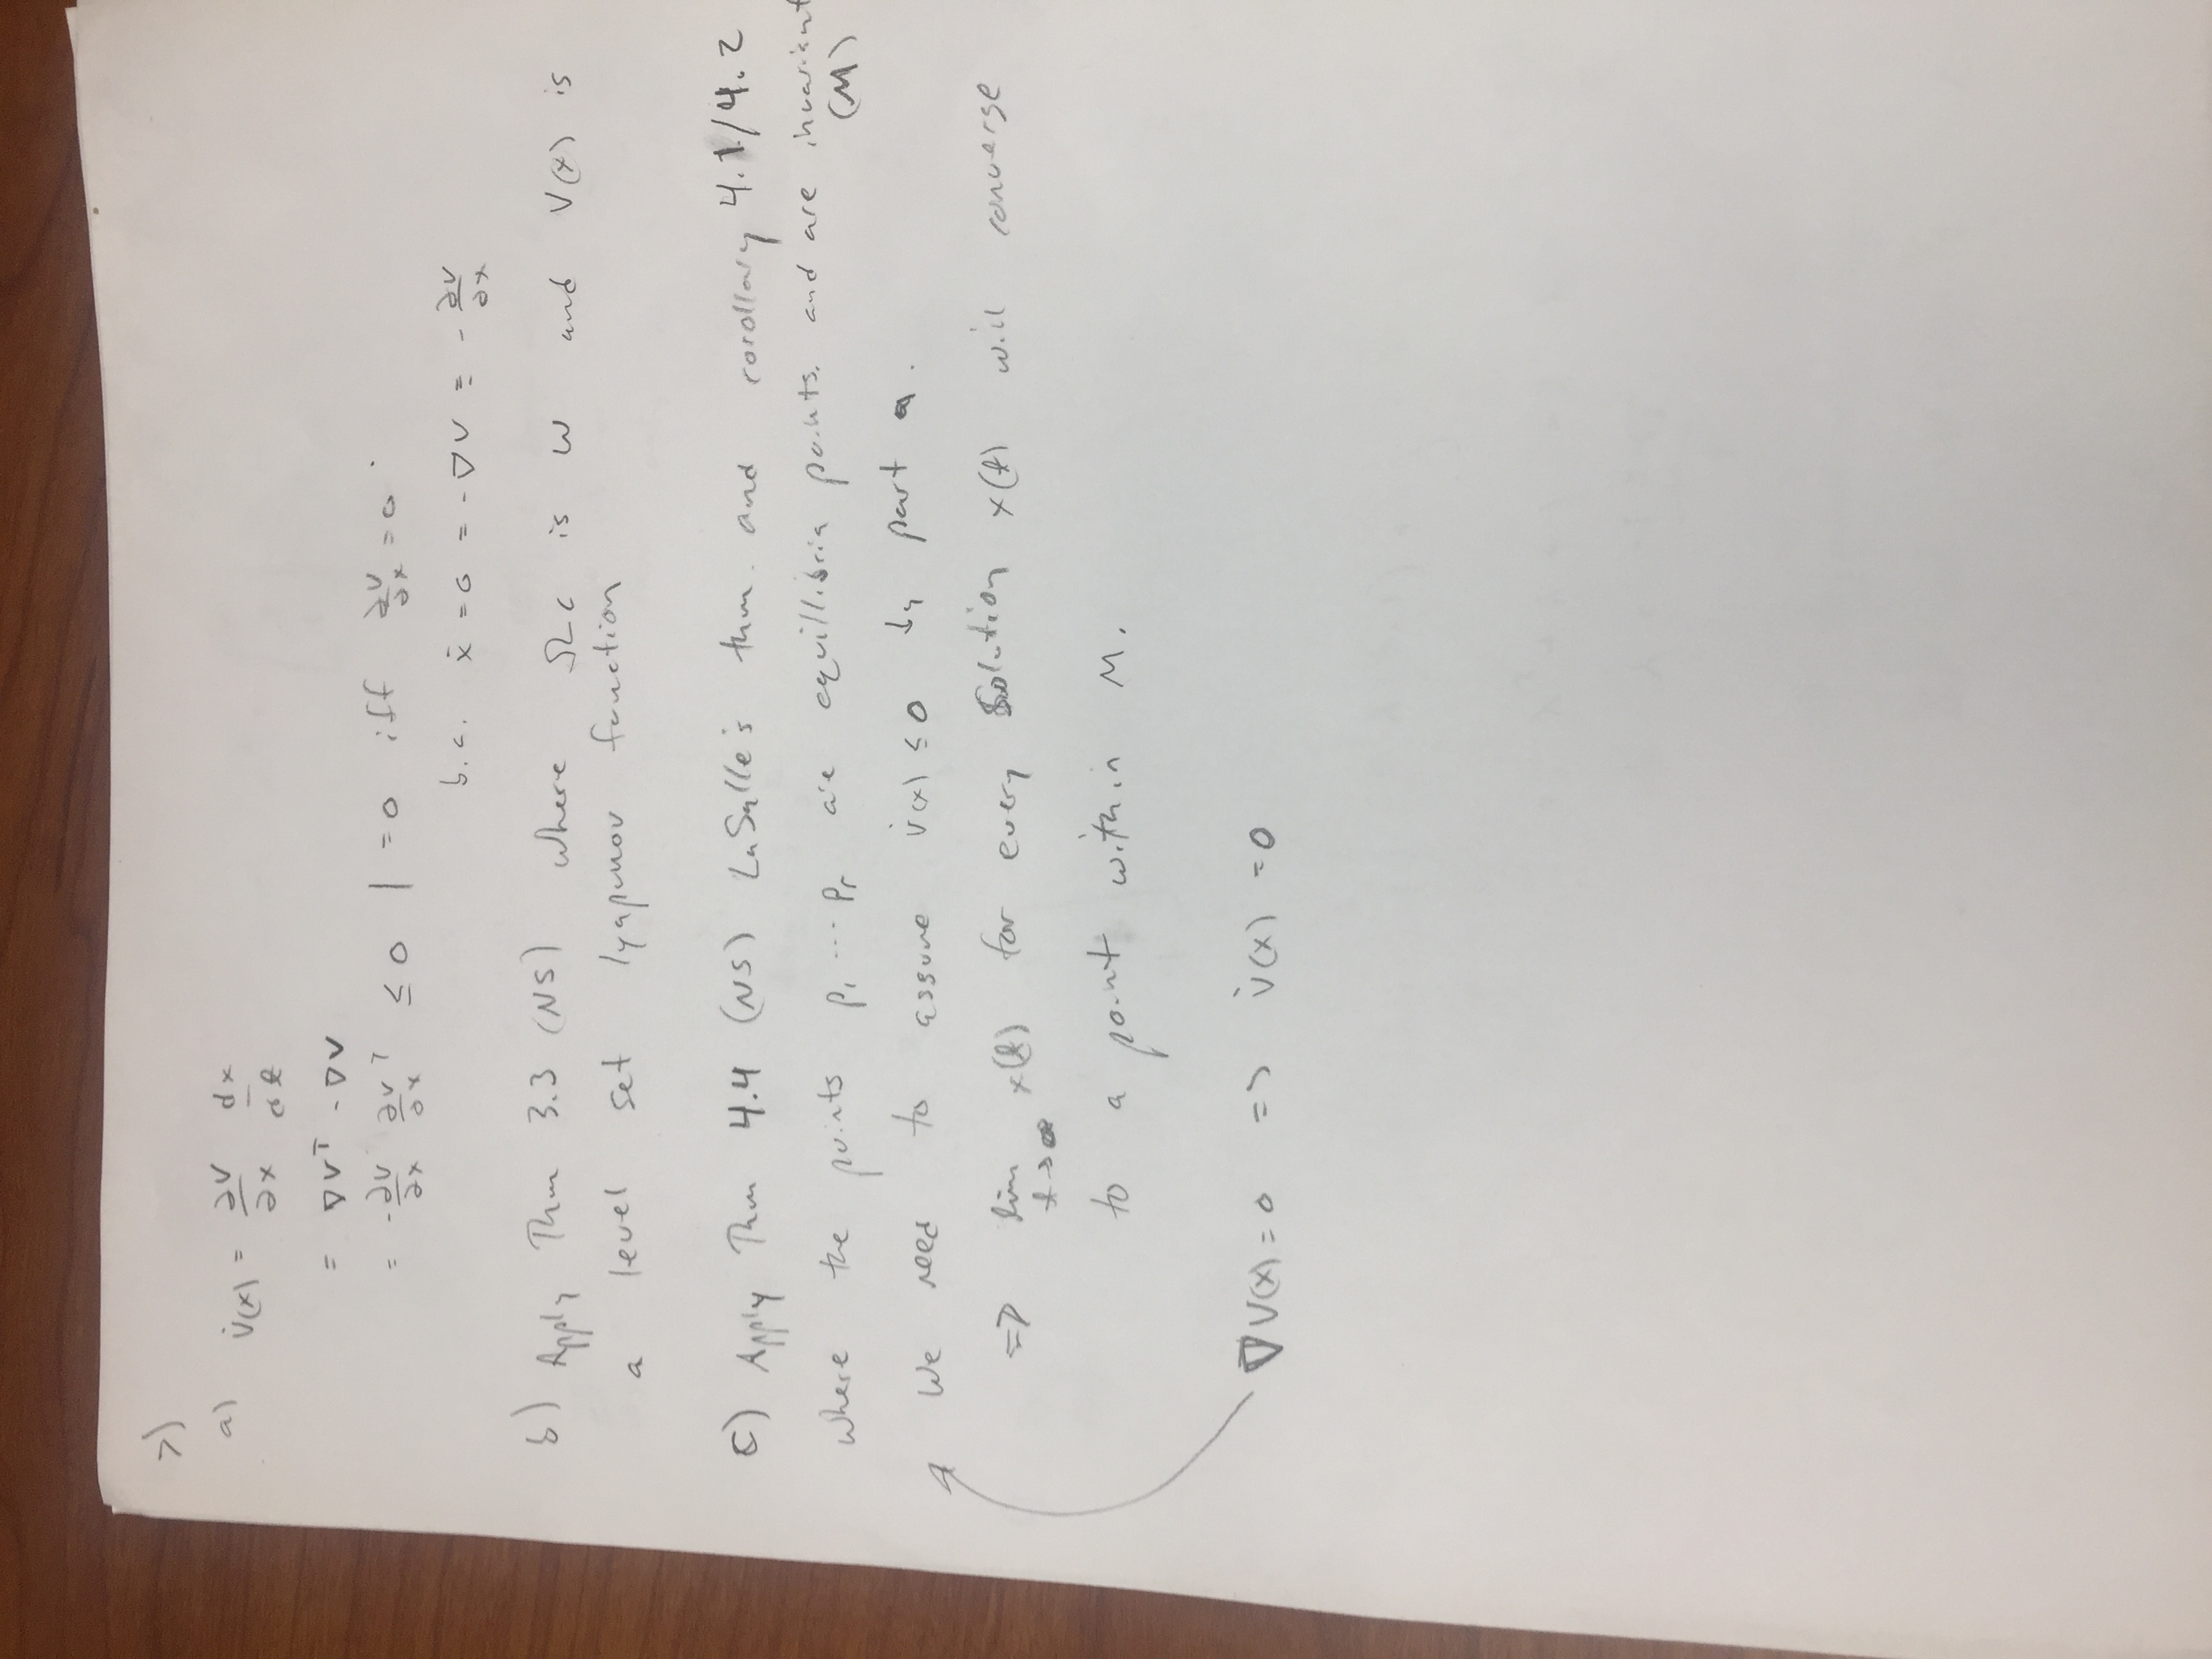 7)
a) V̇(x) = ∂V/∂x dx/dt
= ∇Vᵀ - ∇V
= -∂V/∂x ∂V/∂xᵀ ≤ 0 | = 0 iff ∂V/∂x = 0
b.c. ẋ = 0 = -∇V = -∂V/∂x
b) Apply Thm 3.3 (NS) where Ωc is W and V(x) is
a level set lyapunov function
c) Apply Thm 4.4 (NS) LaSalle's thm. and corollary 4.1/4.2
where the points p₁ ... pᵣ are equillibria points. and are invariant
(M)
We need to assume V̇(x) ≤ 0 by part a.
=> lim t→∞ x(t) for every solution x(t) will converse
to a point within M.
∇V(x) = 0 => V̇(x) = 0